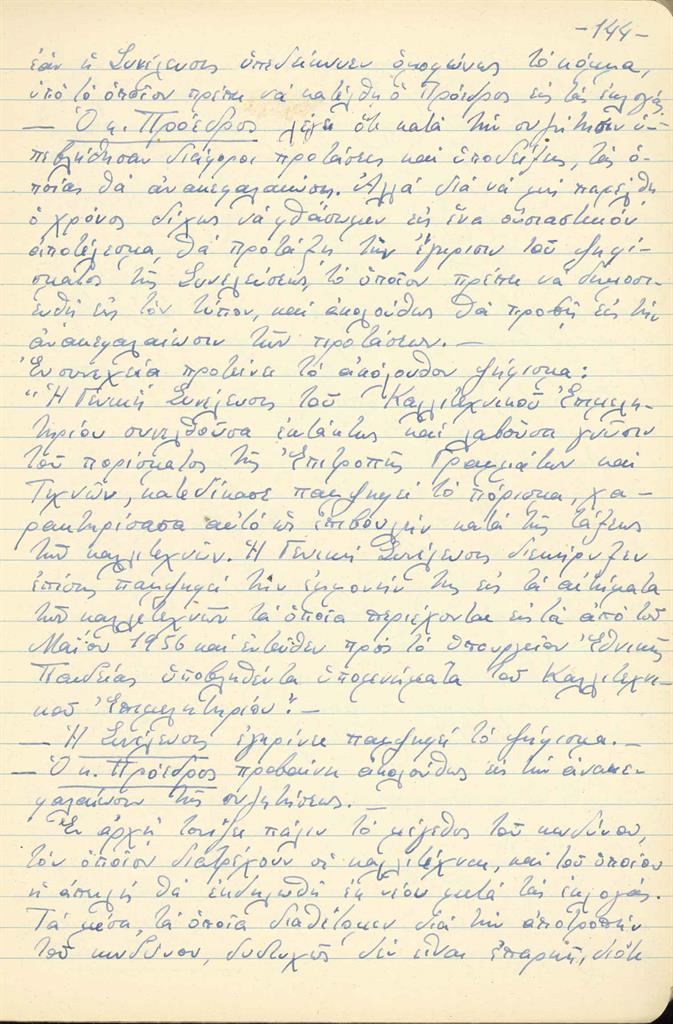 -144-
ἐὰν ἡ Συνέλευσις ὑπεδείκνυεν ὁμοφώνως τὸ κόμμα,
ὑπὸ τὸ ὁποῖον πρέπει νὰ κατέλθῃ ὁ Πρόεδρος εἰς τὰς ἐκλογάς.
— Ὁ κ. Πρόεδρος λέγει ὅτι κατὰ τὴν συζήτησιν ὑ-
πεβλήθησαν διάφοροι προτάσεις καὶ ὑποδείξεις, τὰς ὁ-
ποίας θὰ ἀνακεφαλαιώσῃ. Ἀλλὰ διὰ νὰ μὴ παρέλθῃ
ὁ χρόνος δίχως νὰ φθάσωμεν εἰς ἕνα οὐσιαστικόν
ἀποτέλεσμα, θὰ προτάξῃ τὴν ἔγκρισιν τοῦ ψηφί-
σματος τῆς Συνελεύσεως, τὸ ὁποῖον πρέπει νὰ δημοσι-
ευθῇ εἰς τὸν τύπον, καὶ ἀκολούθως θὰ προβῇ εἰς τὴν
ἀνακεφαλαίωσιν τῶν προτάσεων. —
Ἐν συνεχείᾳ προτείνει τὸ ἀκόλουθον ψήφισμα:
"Ἡ Γενικὴ Συνέλευσις τοῦ Καλλιτεχνικοῦ Ἐπιμελη-
τηρίου συνελθοῦσα ἐκτάκτως καὶ λαβοῦσα γνῶσιν
τοῦ πορίσματος τῆς Ἐπιτροπῆς Γραμμάτων καὶ
Τεχνῶν, κατεδίκασε παμψηφεὶ τὸ πόρισμα, χα-
ρακτηρίσασα αὐτὸ ὡς ἐπιβουλὴν κατὰ τῆς τάξεως
τῶν καλλιτεχνῶν. Ἡ Γενικὴ Συνέλευσις διεκήρυξεν
ἐπίσης παμψηφεὶ τὴν ἐμμονήν της εἰς τὰ αἰτήματα
τῶν καλλιτεχνῶν τὰ ὁποῖα περιέχονται εἰς τὰ ἀπὸ τοῦ
Μαΐου 1956 καὶ ἐντεῦθεν πρὸς τὸ Ὑπουργεῖον Ἐθνικῆς
Παιδείας ὑποβληθέντα ὑπομνήματα τοῦ Καλλιτεχνι-
κοῦ Ἐπιμελητηρίου". —
— Ἡ Συνέλευσις ἐγκρίνει παμψηφεὶ τὸ ψήφισμα. —
— Ὁ κ. Πρόεδρος προβαίνει ἀκολούθως εἰς τὴν ἀνακε-
φαλαίωσιν τῆς συζητήσεως. —
Ἐν ἀρχῇ τονίζει πάλιν τὸ μέγεθος τοῦ κινδύνου,
τὸν ὁποῖον διατρέχουν οἱ καλλιτέχναι, καὶ τοῦ ὁποίου
ἡ ἀπειλὴ θὰ ἐκδηλωθῇ ἐκ νέου μετὰ τὰς ἐκλογάς.
Τὰ μέσα, τὰ ὁποῖα διαθέτομεν διὰ τὴν ἀποτροπὴν
τοῦ κινδύνου, δυστυχῶς δὲν εἶναι ἐπαρκῆ, διότι